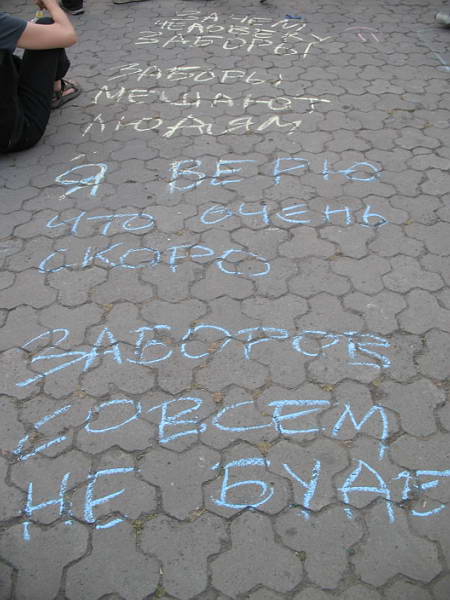 ЗАЧЕМ
ЧЕЛОВЕКУ
ЗАБОРЫ
ЗАБОРЫ
МЕШАЮТ
ЛЮДЯМ
Я ВЕРЮ
ЧТО ОЧЕНЬ
СКОРО
ЗАБОРОВ
СОВСЕМ
НЕ БУДЕ